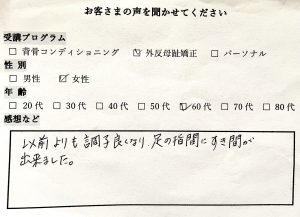 お客さまの声を聞かせてください
受講プログラム
□ 背骨コンディショニング ☑ 外反母趾矯正 □ パーソナル
性 別
□ 男性 ☑ 女性
年 齢
□ 20 代 □ 30 代 □ 40 代 □ 50 代 ☑ 60 代 □ 70 代 □ 80 代
感想など
以前よりも調子良くなり、足の指間にすき間が
出来ました。